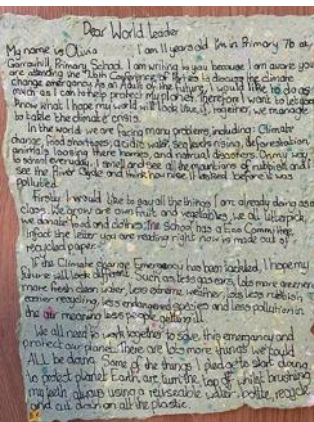 Dear World Leader
My name is Olivia I am 11 years old I'm in Primary 7b at
Garrowhill, Primary School. I am writing to you because I am aware you
are attending the "26th Conference of Parties to discuss the climate
change emergency. As an adult of the future, I would like to do as
much as I can to help protect my planet. Therefore I want to let you
know what I hope my world will look like if, together, we manage
to tackle the climate crisis.
In the world we are facing many problems, including: Climate
change, food shortages, acidic water, sea levels rising, deforestation,
animals loosing there homes, and natural disasters. On my way
to school everyday, I smell and see all the mountains of rubbish and I
see the River Clyde and think how nice it looked before it was
polluted.
Firstly I would like to say all the things I am already doing as a
class. We grow are own fruit and vegetables, we all litter pick,
we donate food and clothes. The School has a Eco Committee,
Infact the letter you are reading right now is made out of
recycled paper.
If the Climate change Emergency has been tackled, I hope my
future will look different. Such as less gas cars, lots more greenery
more fresh clean water, less extreme weather, lots less rubbish
easier recycling, less endangered species and less pollution in
the air meaning less people getting ill.
We all need to work together to solve this emergancy and
protect our planet. There are lots more things we could
ALL be doing. Some of the things I pledge to start doing
to protect planet Earth are turn the tap off whilst brushing
my teeth, always using a reuseable water bottle, recycle
and cut down on all the plastic.